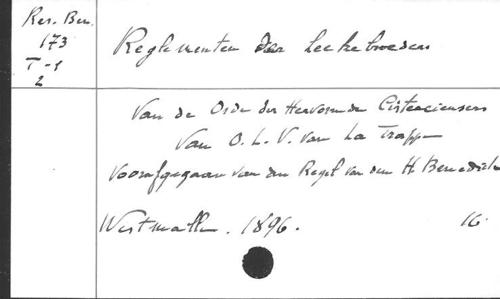 Res. Ben.
173
T-1
2
Reglementen der Leekebroeders
Van de Orde der Hervormde Cisterciensers
Van O. L. V. van La Trappe
Voorafgegaan van den Regel van den H. Benedictus
Westmalle. 1896. 16